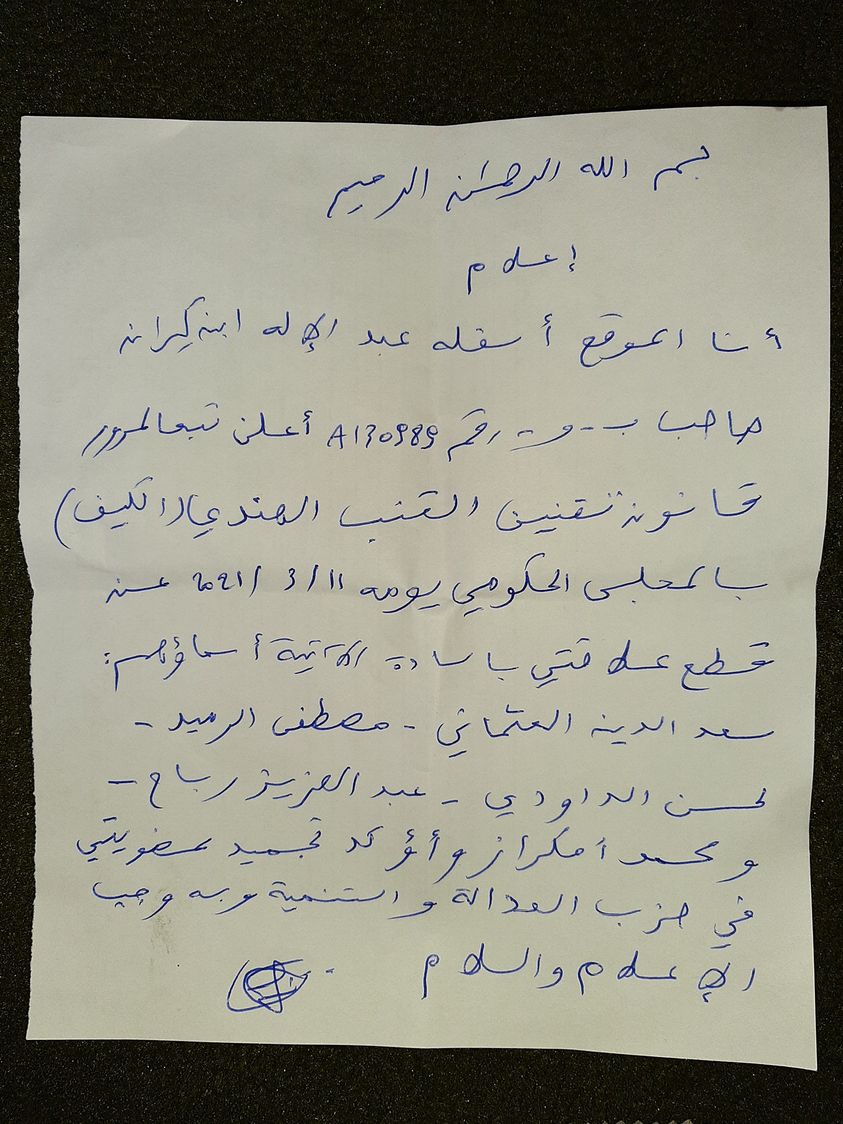 بسم الله الرحمان الرحيم
إعلام
أنا الموقع أسفله عبد الإله ابن كيران
صاحب ب-و- رقم A130989 أعلن تبعا لمرور
قانون تقنين القنب الهندي (الكيف)
بالمجلس الحكومي يومه 11/3/2021 عن
قطع علاقتي بالسادة الآتية أسماؤهم:
سعد الدين العثماني - مصطفى الرميد -
لحسن الداودي - عبد العزيز رباح -
و محمد أمكراز وأؤكد تجميد عضويتي
في حزب العدالة والتنمية وبه وجب
الإعلام والسلام.